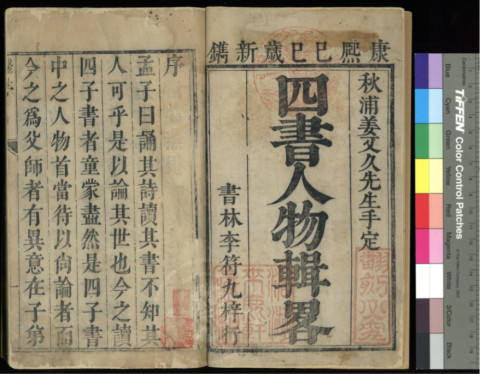 康熙己巳歲新鐫
秋浦姜文久先生手定
四書人物輯畧
書林李符九梓行
序
孟子曰誦其詩讀其書不知其
人可乎是以論其世也今之讀
四子書者童蒙盡然是四子書
中之人物首當待以尙論者而
今之爲父師者有異意在子第
TIFFEN Color Control Patches
Blue
Cyan
Green
Yellow
Red
Magenta
White
3/Color
Black